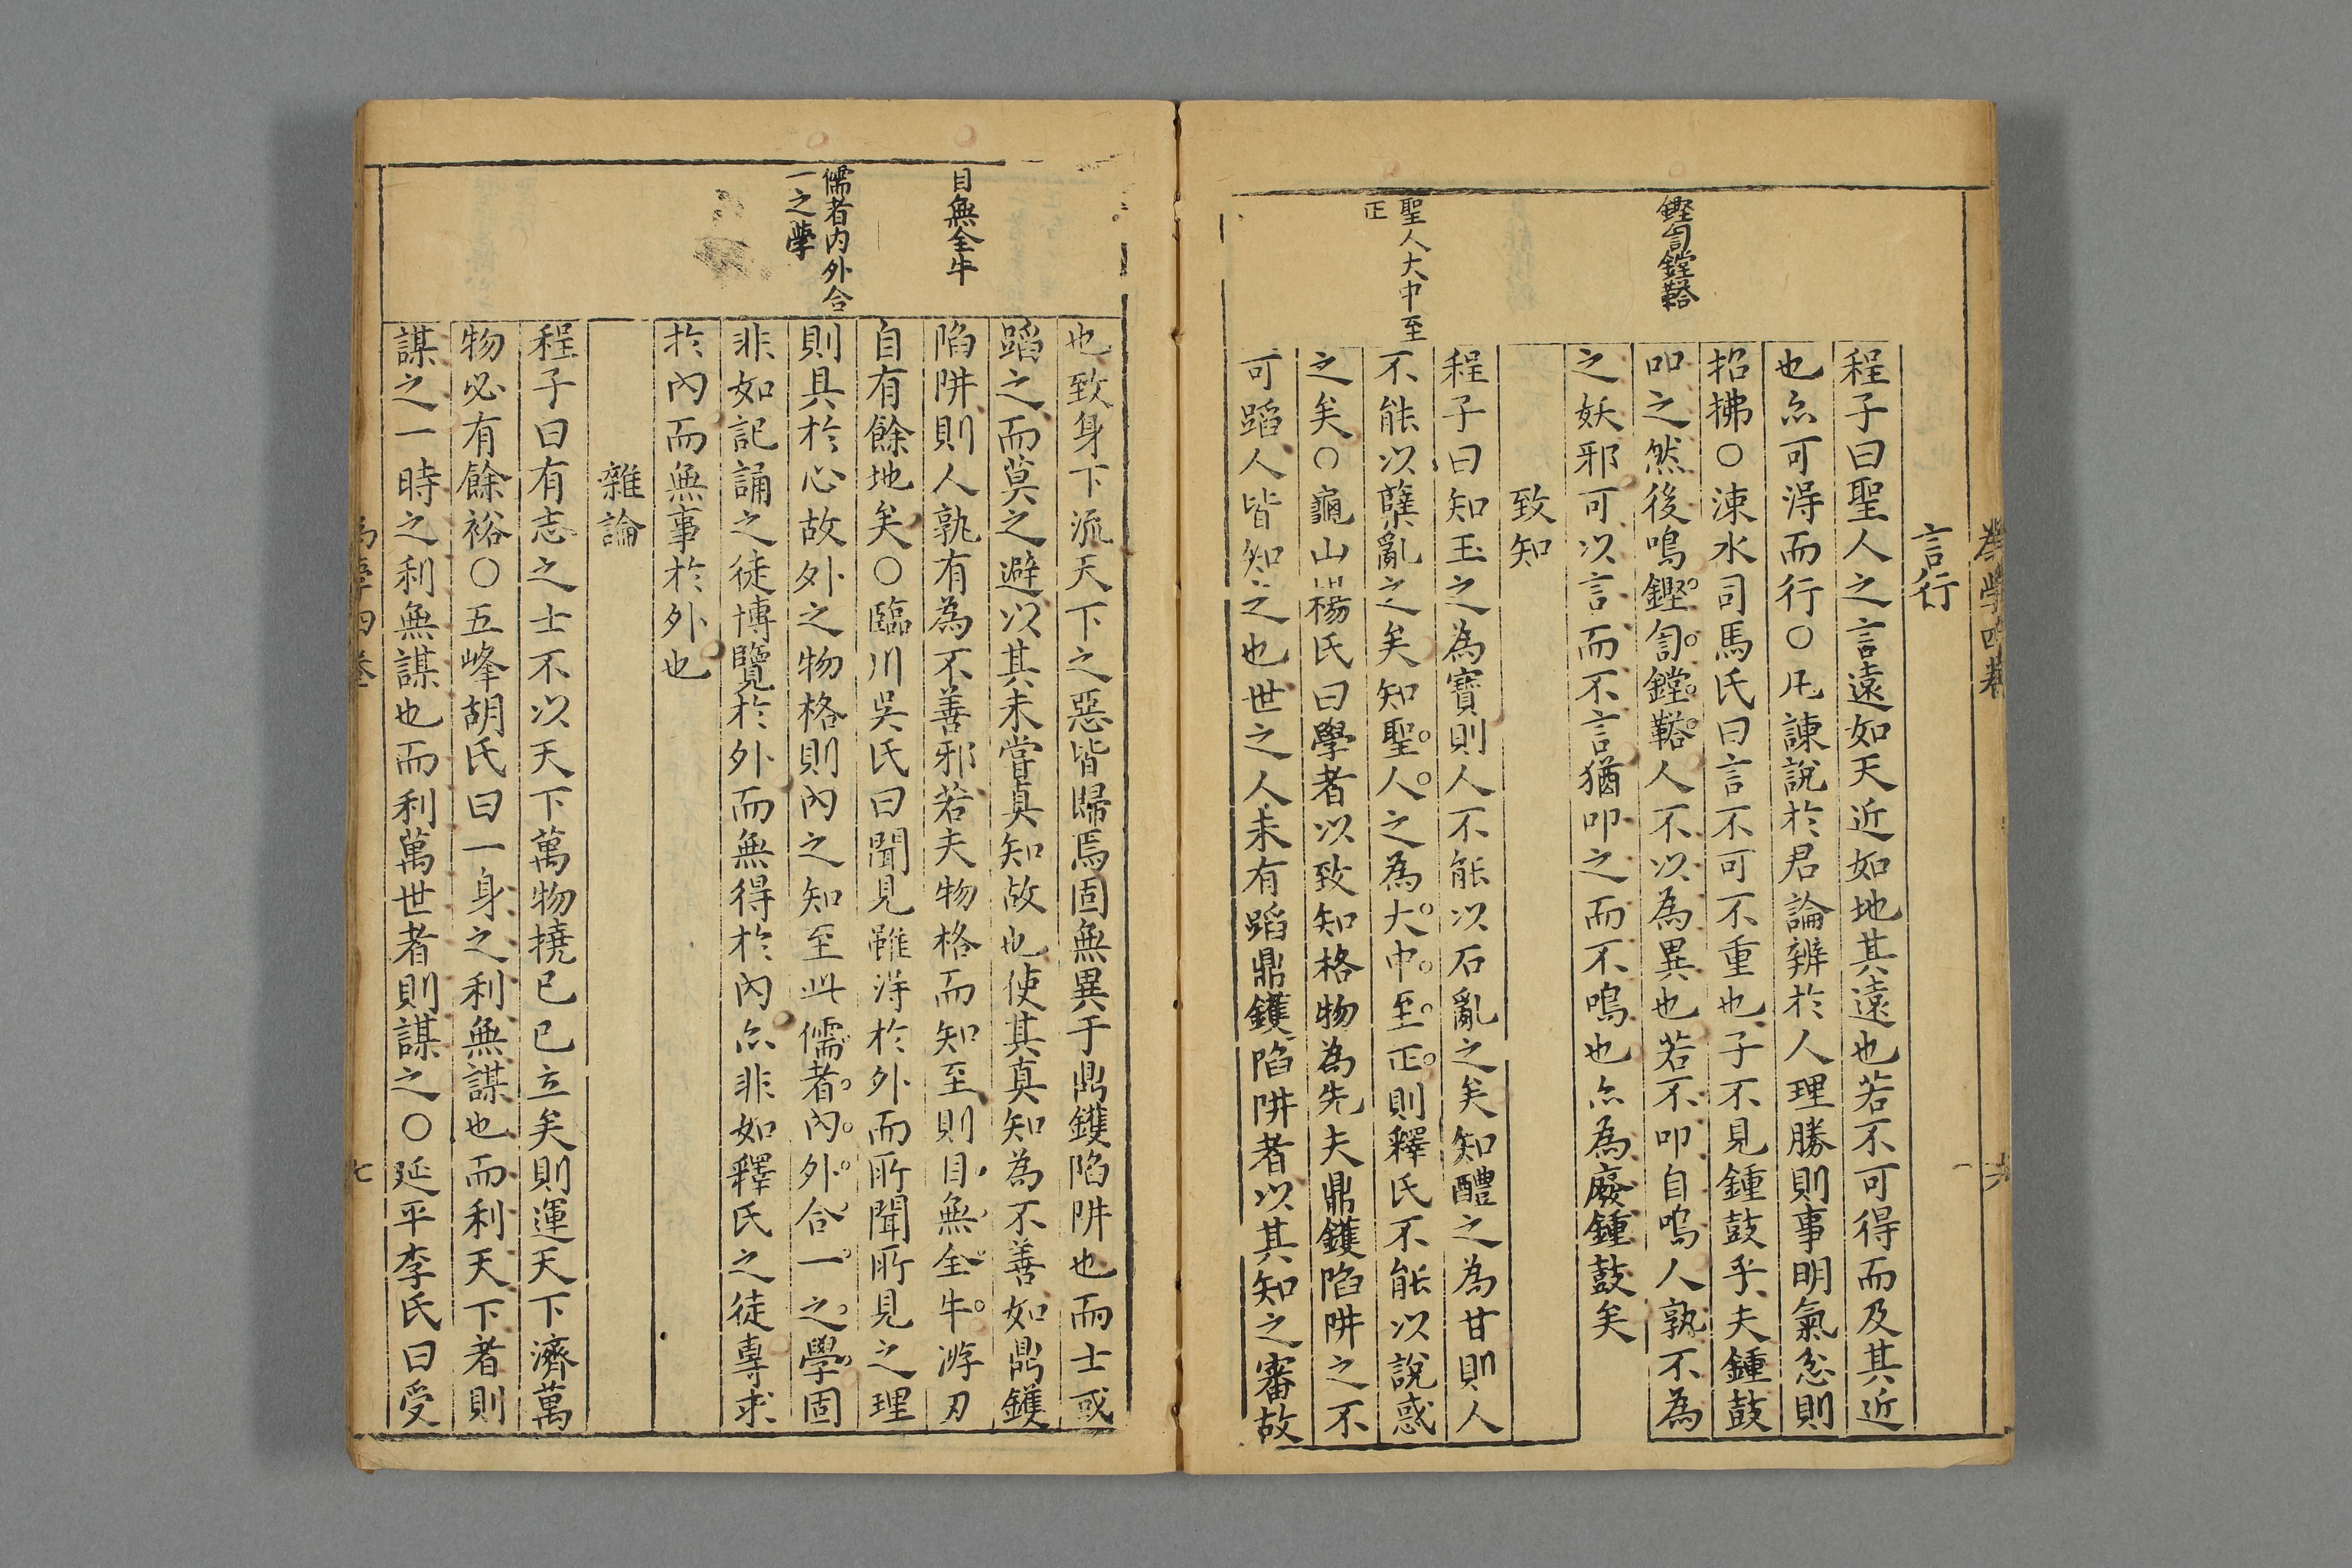 為學四卷
六
言行
程子曰聖人之言遠如天近如地其遠也若不可得而及其近
也亦可淂而行○凡諫說於君論辨於人理勝則事明氣忿則
招拂○涑水司馬氏曰言不可不重也子不見鍾鼓乎夫鍾鼓
叩之然後鳴鏗訇鏜鞳人不以為異也若不叩自鳴人孰不為
之妖邪可以言而不言猶叩之而不鳴也亦為廢鍾鼓矣
致知
程子曰知玉之為寶則人不能以石亂之矣知醴之為甘則人
不能以蘖亂之矣知聖人之為大中至正則釋氏不能以說惑
之矣○龜山楊氏曰學者以致知格物為先夫鼎鑊陷阱之不
可蹈人皆知之也世之人未有蹈鼎鑊陷阱者以其知之審故
鏗訇鏜鞳
聖人大中至
正
也致身下流天下之惡皆歸焉固無異于鼎鑊陷阱也而士或
蹈之而莫之避以其未嘗真知故也使其真知為不善如鼎鑊
陷阱則人孰有為不善邪若夫物格而知至則目無全牛游刃
自有餘地矣○臨川吳氏曰聞見雖淂於外而所聞所見之理
則具於心故外之物格則內之知至此儒者內外合一之學固
非如記誦之徒博覽於外而無得於內亦非如釋氏之徒專求
於內而無事於外也
雜論
程子曰有志之士不以天下萬物撓已已立矣則運天下濟萬
物必有餘裕○五峰胡氏曰一身之利無謀也而利天下者則
謀之一時之利無謀也而利萬世者則謀之○延平李氏曰受
目無全牛
儒者內外合
一之學
為學四卷
七